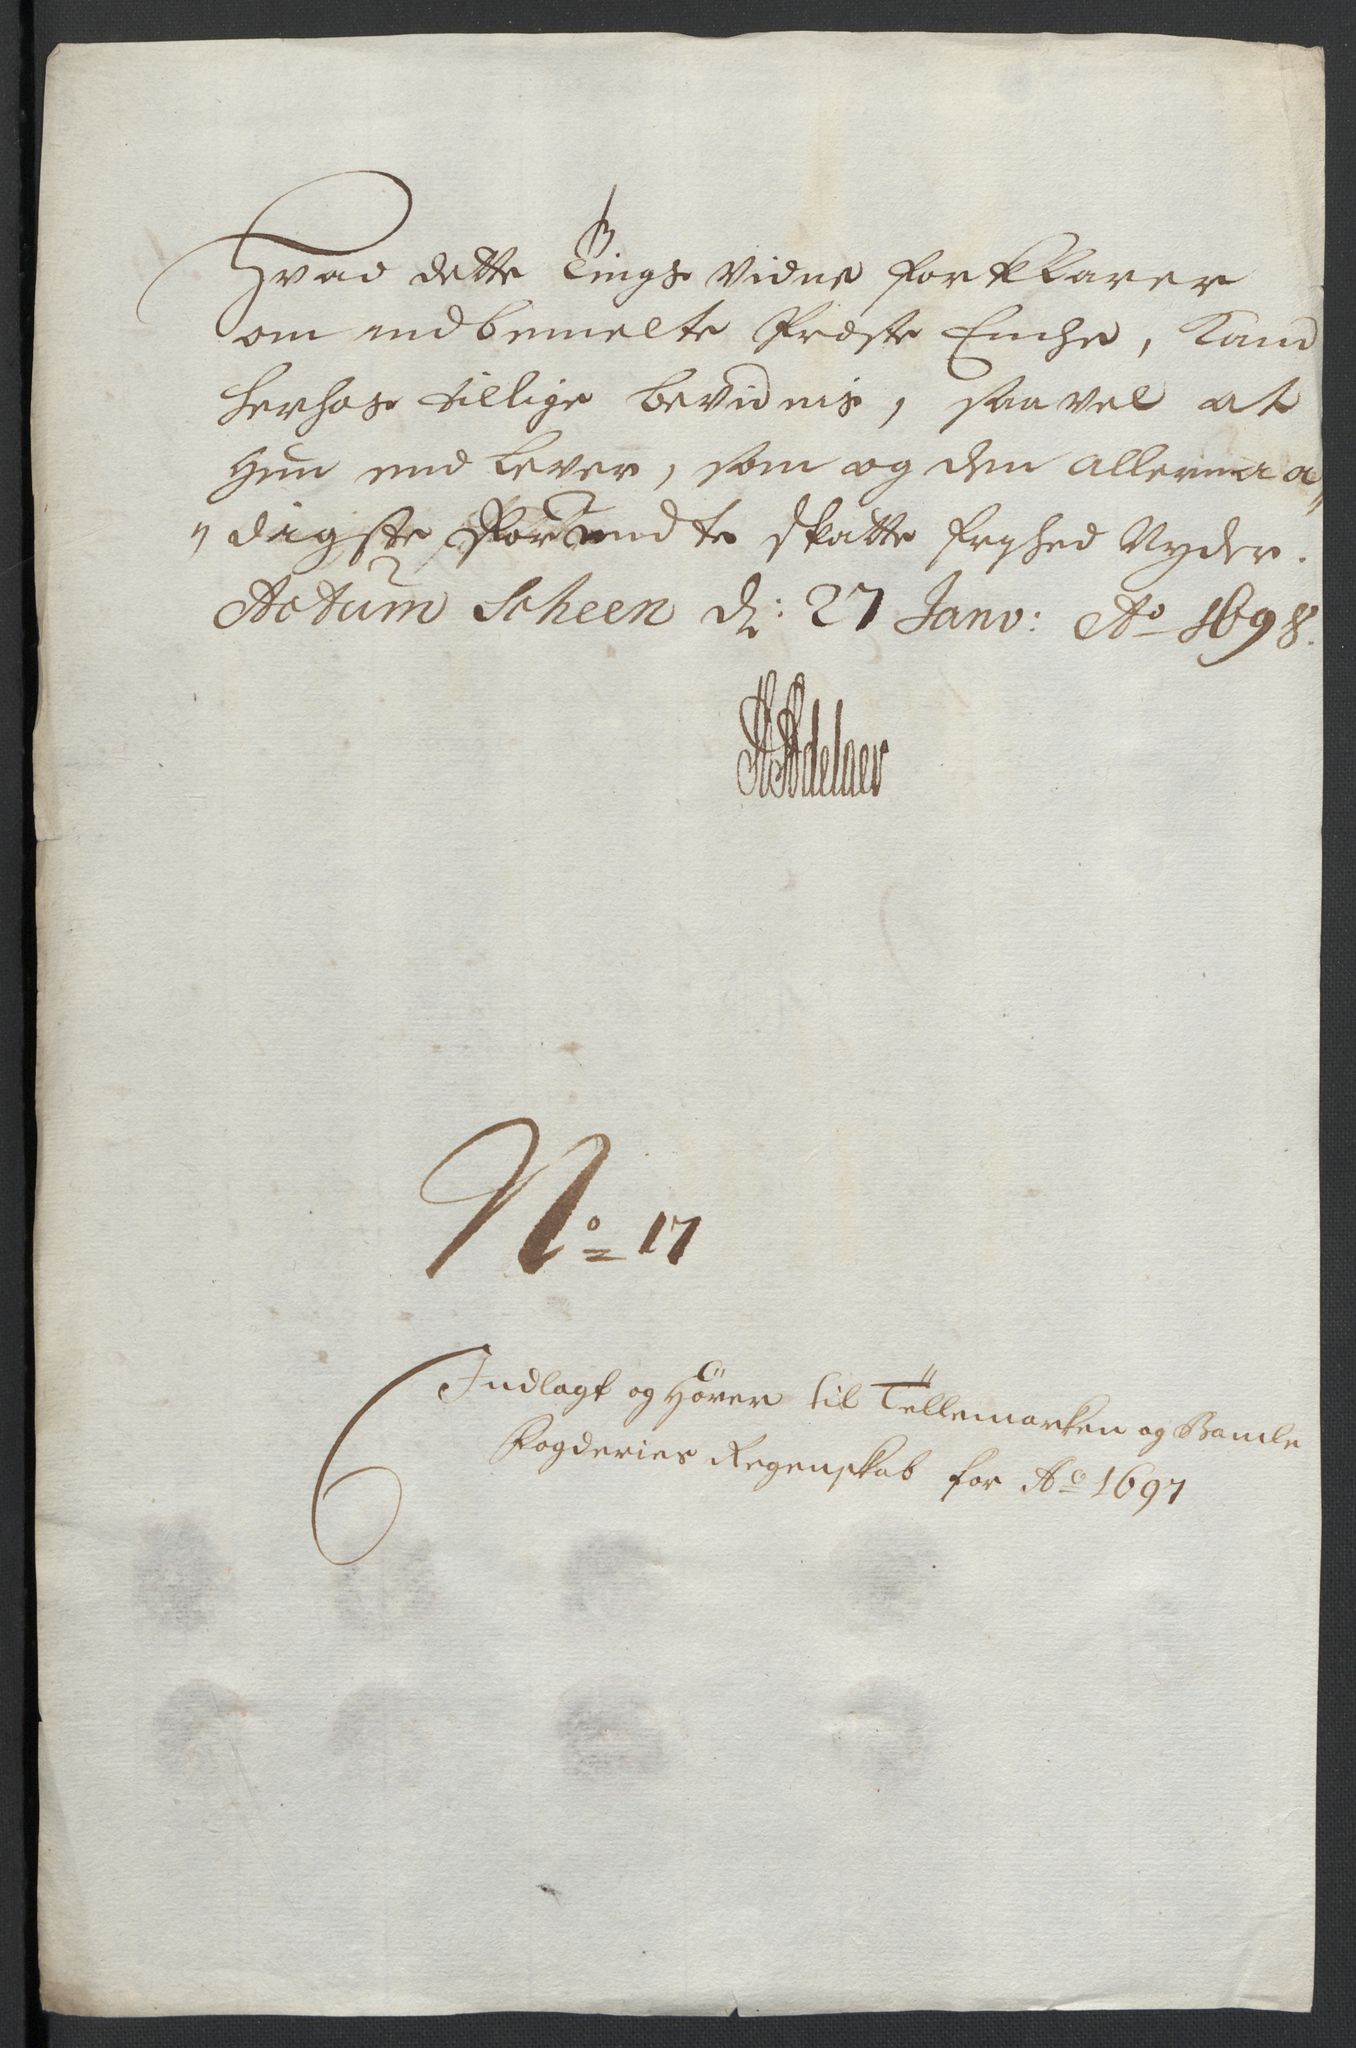 Hvad dette Tings vidne forklarer
om indbemelte Præste Enche, Kand
herhos tillige bevidnis, saavel at
Hun end lever, som og den allernaa„
„digste forundte skatte fryhed Nyder.
Actum Scheen d: 27 Janv: Ao 1698.
Adelaer
No 17
Indlagt og Hörer til Tellemarken og Bamle
Fogderies Regenskab for Ao 1697